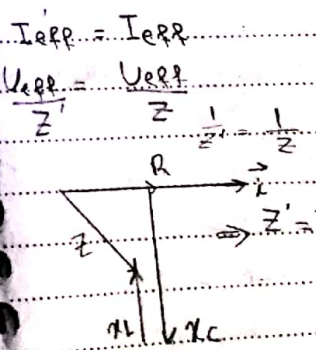 I'eff = Ieff
Ueff/Z' = Ueff/Z
1/Z' = 1/Z
R
i
Z
⇒ Z' =
XL
XC